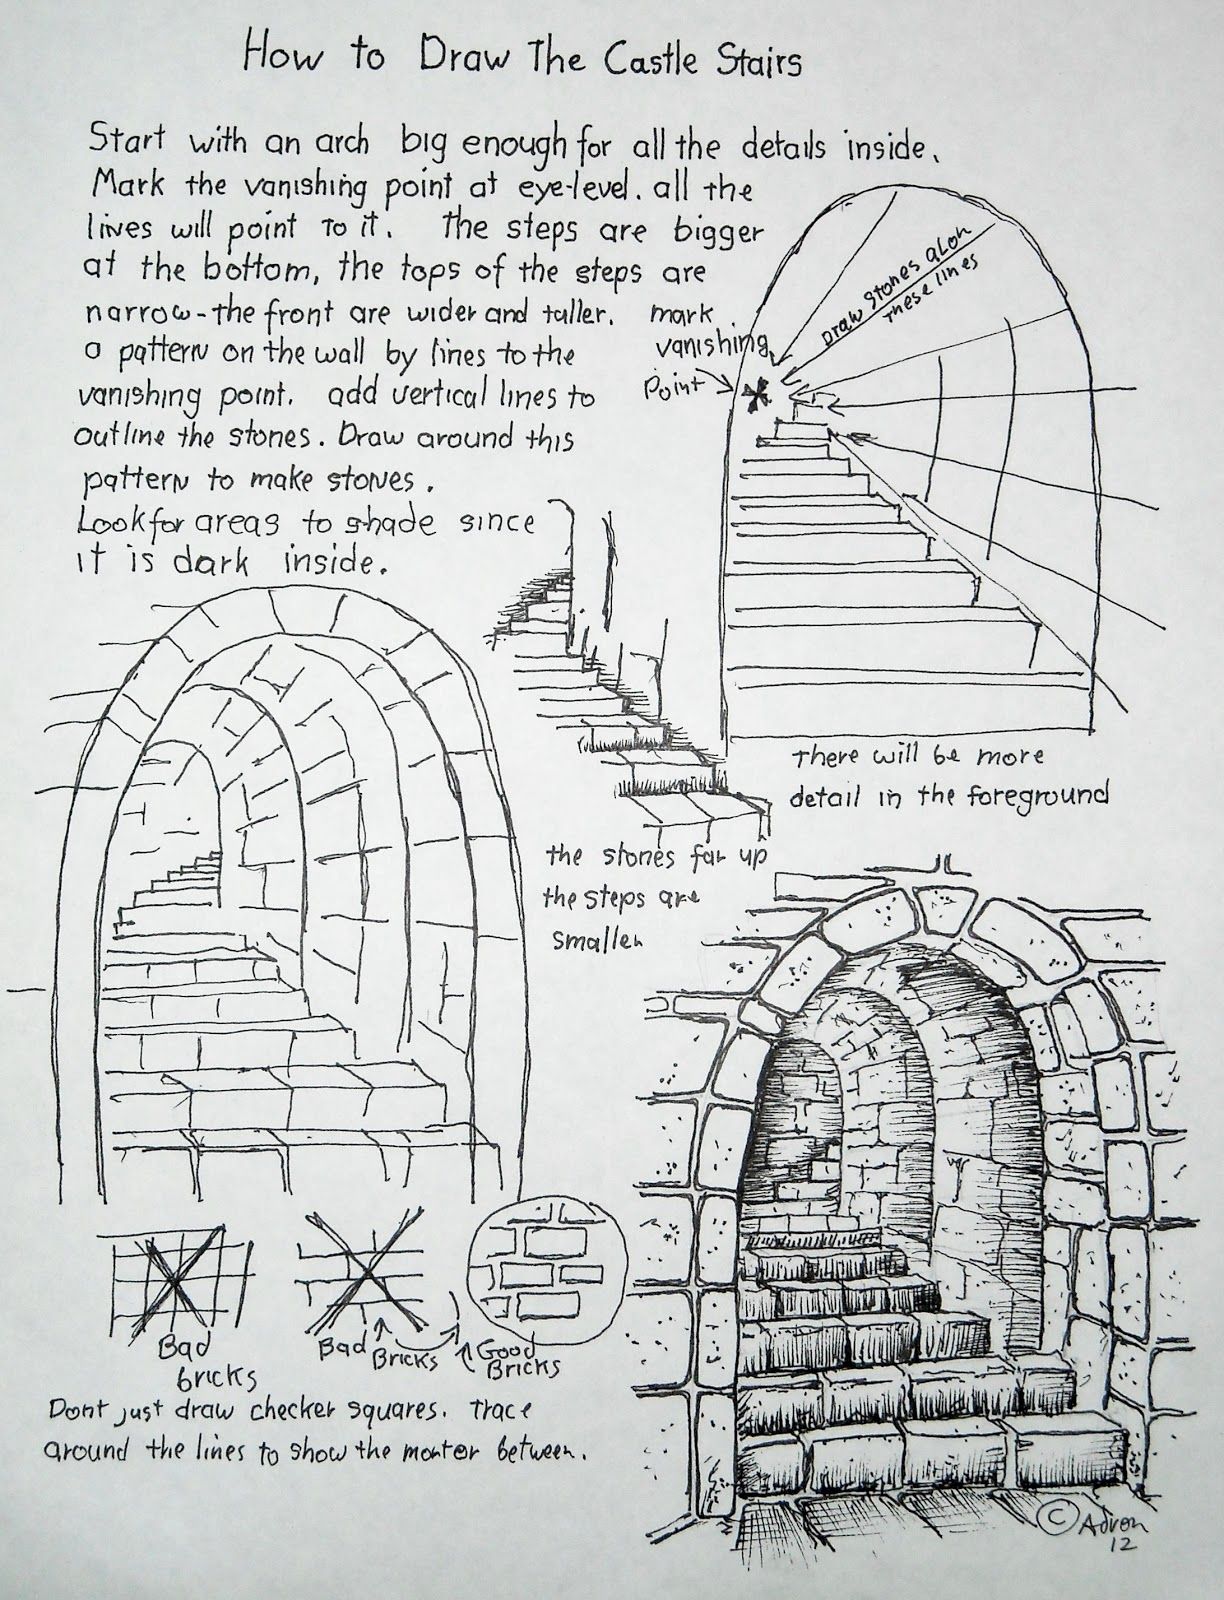 How to Draw The Castle Stairs
Start with an arch big enough for all the details inside.
Mark the vanishing point at eye-level. all the
lines will point to it. The steps are bigger
at the bottom, the tops of the steps are
narrow-the front are wider and taller.
a pattern on the wall by lines to the
vanishing point. add vertical lines to
outline the stones. Draw around this
pattern to make stones.
Look for areas to shade since
it is dark inside.
mark
vanishing
point
Draw stones alon
these lines
There will be more
detail in the foreground
the stones far up
the steps are
smaller
Bad
bricks
Bad Bricks
Good
Bricks
Dont just draw checker squares. Trace
around the lines to show the mortor between.
© Adron
12